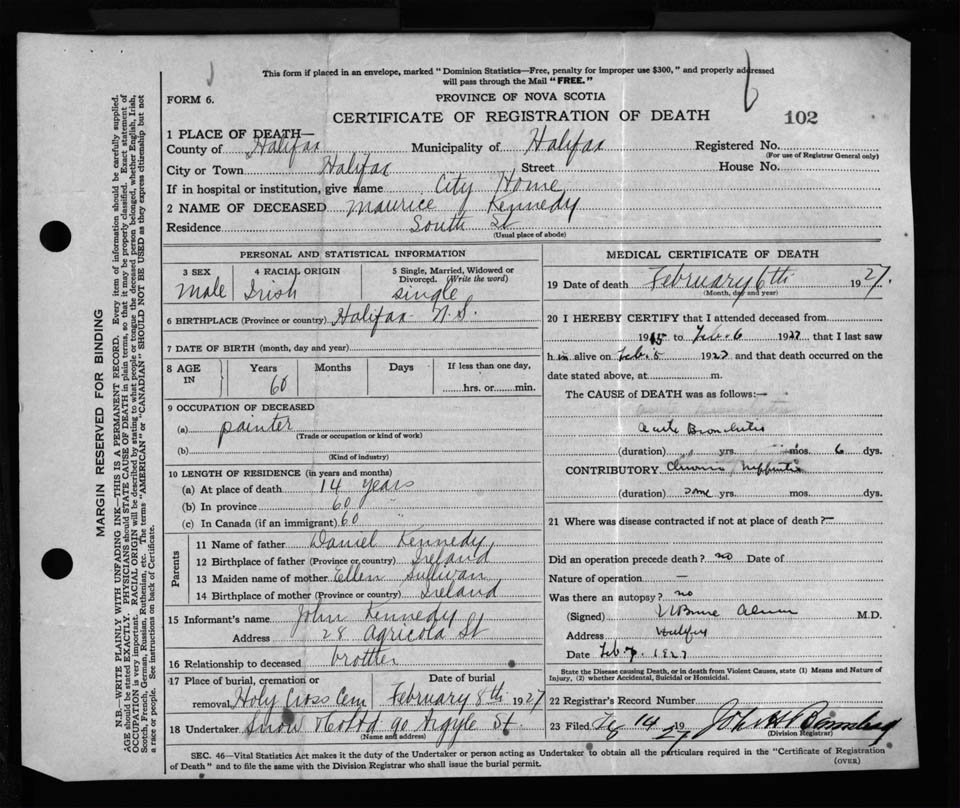 This form if placed in an envelope, marked "Dominion Statistics—Free, penalty for improper use $300," and properly addressed
will pass through the Mail "FREE."
FORM 6.
PROVINCE OF NOVA SCOTIA
CERTIFICATE OF REGISTRATION OF DEATH
102
1 PLACE OF DEATH—
County of Halifax Municipality of Halifax Registered No.
(For use of Registrar General only)
City or Town Halifax Street House No.
If in hospital or institution, give name City Home
2 NAME OF DECEASED Maurice J Kennedy
Residence South St
(Usual place of abode)
PERSONAL AND STATISTICAL INFORMATION
3 SEX Male
4 RACIAL ORIGIN Irish
5 Single, Married, Widowed or Divorced. (Write the word) single
6 BIRTHPLACE (Province or country) Halifax N.S.
7 DATE OF BIRTH (month, day and year)
8 AGE IN Years 60 Months Days If less than one day, hrs. or min.
9 OCCUPATION OF DECEASED
(a) painter
(Trade or occupation or kind of work)
(b)
(Kind of industry)
10 LENGTH OF RESIDENCE (in years and months)
(a) At place of death 14 years
(b) In province 60 "
(c) In Canada (if an immigrant) 60
Parents
11 Name of father Daniel Kennedy
12 Birthplace of father (Province or country) Ireland
13 Maiden name of mother Ellen Sullivan
14 Birthplace of mother (Province or country) Ireland
15 Informant's name John Kennedy
Address 28 Agricola St
16 Relationship to deceased brother
17 Place of burial, cremation or removal Holy Cross Cem
Date of burial February 8th 1927
18 Undertaker Snow & Co Ltd 90 Argyle St.
(Name and address)
MEDICAL CERTIFICATE OF DEATH
19 Date of death February 6th 1927.
(Month, day and year)
20 I HEREBY CERTIFY that I attended deceased from
1915 to Feb. 6 1927 that I last saw
him alive on Feb. 5 1927 and that death occurred on the
date stated above, at m.
The CAUSE of DEATH was as follows:—
Acute Bronchitis
(duration) yrs. mos. 6 dys.
CONTRIBUTORY Chronic Nephritis
(duration) some yrs. mos. dys.
21 Where was disease contracted if not at place of death? —
Did an operation precede death? no Date of
Nature of operation —
Was there an autopsy? no
(Signed) M.D.
Address Halifax
Date Feb 7. 1927
State the Disease causing Death, or in death from Violent Causes, state (1) Means and Nature of
Injury, (2) whether Accidental, Suicidal or Homicidal.
22 Registrar's Record Number
23 Filed 14 19 27 John H
(Division Registrar)
SEC. 46—Vital Statistics Act makes it the duty of the Undertaker or person acting as Undertaker to obtain all the particulars required in the "Certificate of Registration
of Death" and to file the same with the Division Registrar who shall issue the burial permit.
(OVER)
MARGIN RESERVED FOR BINDING
N.B.—WRITE PLAINLY WITH UNFADING INK—THIS IS A PERMANENT RECORD. Every item of information should be carefully supplied.
AGE should be stated EXACTLY. PHYSICIANS should STATE CAUSE OF DEATH in plain terms, so that it may be properly classified. Exact statement of
OCCUPATION is very important. RACIAL ORIGIN will be described by stating to what people or tongue the deceased person belonged, whether English, Irish,
Scotch, French, German, Russian, Ruthenian, etc. The terms "AMERICAN" or "CANADIAN" SHOULD NOT BE USED as they express citizenship but not
a race or people. See instructions on back of Certificate.